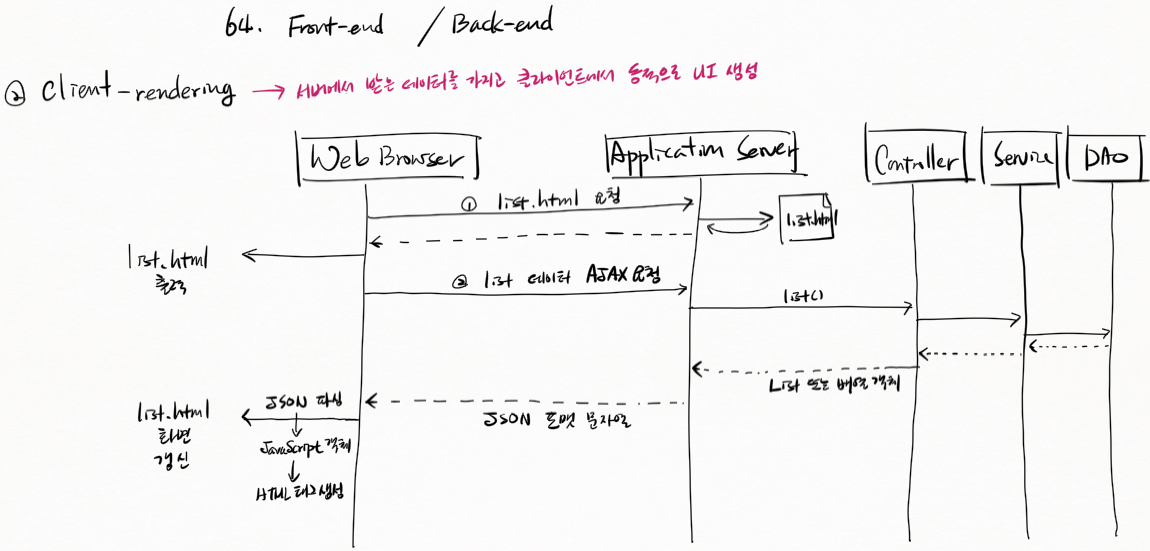 64. Front-end / Back-end
② Client-rendering → 서버에서 받은 데이터를 가지고 클라이언트에서 동적으로 UI 생성
Web Browser
Application Server
Controller
Service
DAO
① list.html 요청
list.html
list.html
출력
② list 데이터 AJAX 요청
list()
List 또는 배열 객체
JSON 포맷 문자열
list.html
화면
갱신
JSON 파싱
JavaScript 객체
HTML 태그 생성